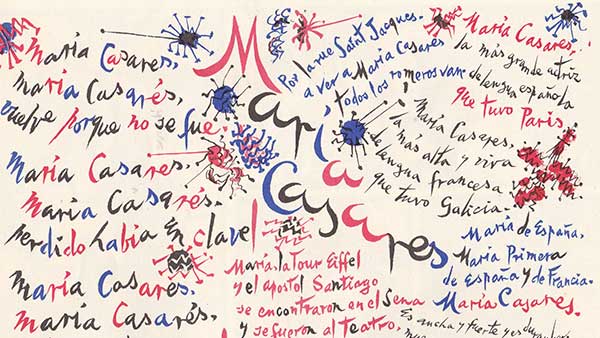 María Casares.
María Casarés,
vuelve porque no se fue.
María Casares.
María Casarés.
Perdido había un clavel
María Casares.
María Casarés.
María
Casares
Por la rue Saint Jacques.
a ver a María Casares
todos los romeros van.
María Casares.
la más grande actriz
de lengua española
que tuvo París.
María Casares,
la más alta y viva
de lengua francesa
que tuvo Galicia.
María de España,
María Primera
de España y de Francia.
María Casares.
María, la Tour Eiffel
y el apóstol Santiago
se encontraron en el Sena
y se fueron al teatro.
Es ancha y fuerte y es